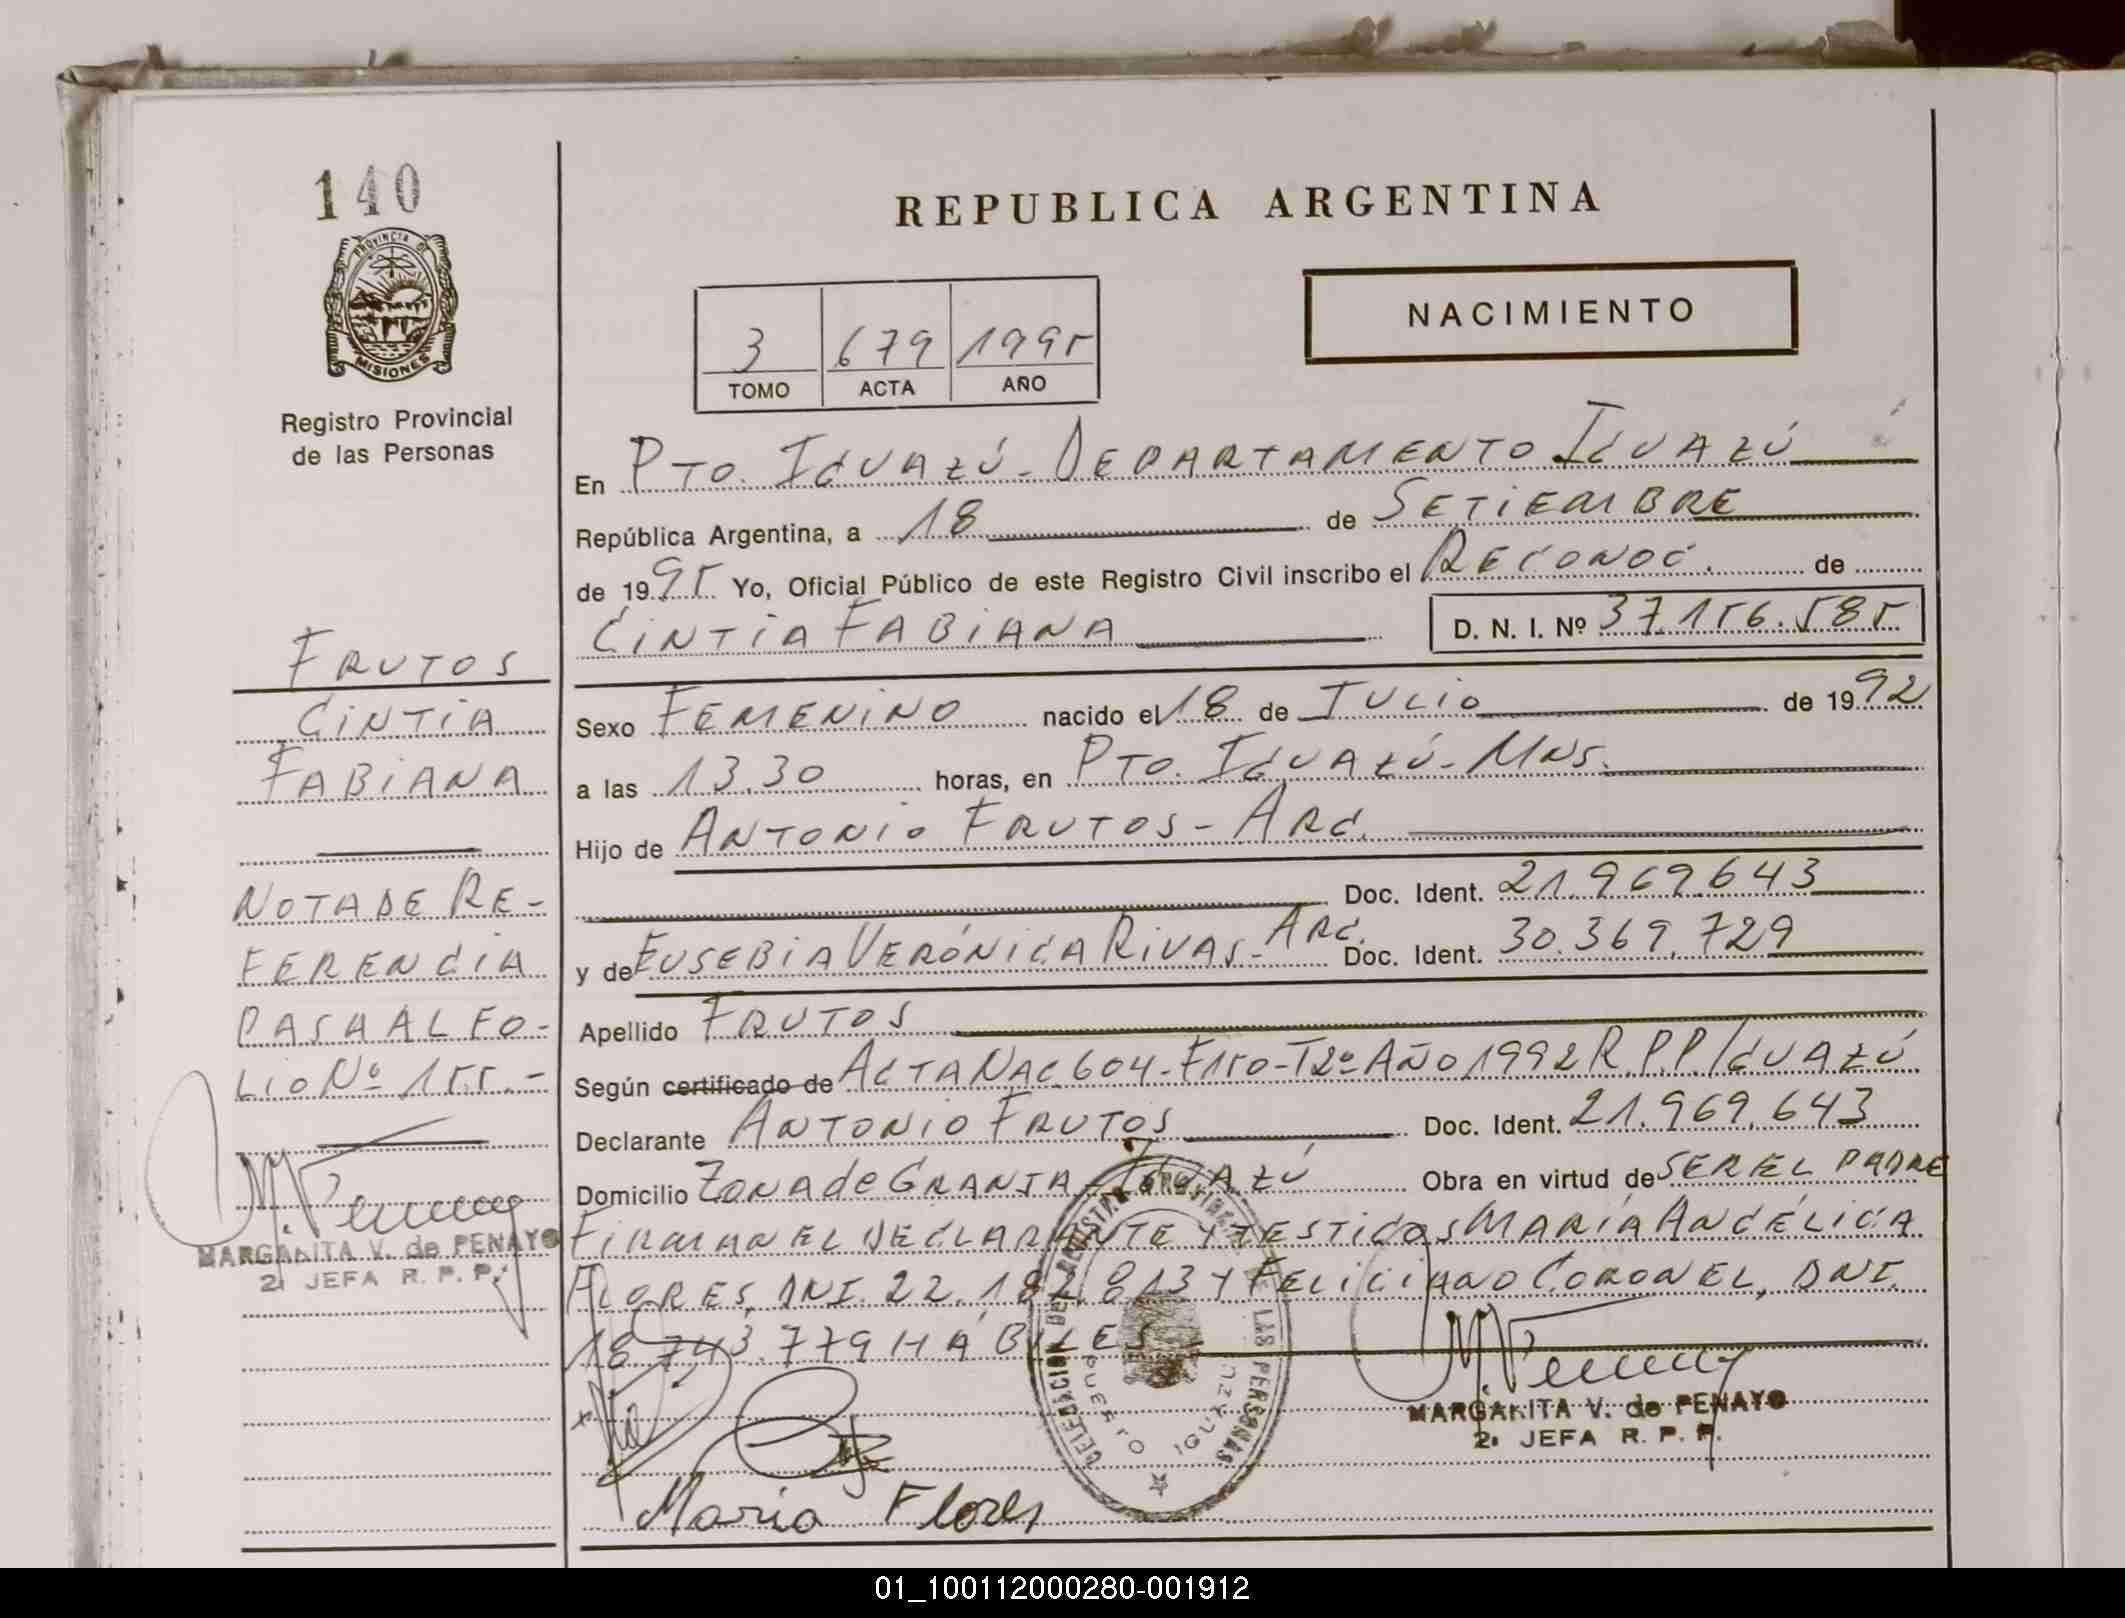 140
PROVINCIA DE
MISIONES
Registro Provincial
de las Personas
REPUBLICA ARGENTINA
NACIMIENTO
3 679 1995
TOMO ACTA AÑO
En PTO. IGUAZÚ - DEPARTAMENTO IGUAZÚ
República Argentina, a 18 de SETIEMBRE
de 1995 Yo, Oficial Público de este Registro Civil inscribo el RECONOC. de
CINTIA FABIANA D. N. I. Nº 37.156.585
FRUTOS
CINTIA
FABIANA
Sexo FEMENINO nacido el 18 de JULIO de 1992
a las 13.30 horas, en PTO. IGUAZÚ - MNS.
Hijo de ANTONIO FRUTOS - ARG.
Doc. Ident. 21.969.643
y de EUSEBIA VERÓNICA RIVAS - ARG. Doc. Ident. 30.369.729
NOTA DE RE-
FERENCIA
PASA AL FO-
LIO Nº 155.-
Apellido FRUTOS
Según certificado de ACTA NAC. 604 - F150 - T2º AÑO 1992 R.P.P. IGUAZÚ
Declarante ANTONIO FRUTOS Doc. Ident. 21.969.643
Domicilio ZONA de GRANJA - IGUAZÚ Obra en virtud de SER EL PADRE
FIRMAN EL DECLARANTE Y TESTIGOS MARÍA ANGÉLICA
FLORES, DNI. 22.182.813 Y FELICIANO CORONEL, DNI.
18.743.779 HÁBILES
MARGARITA V. de PENAYO
2ª JEFA R. P. P.
DELEGACION DEL REGISTRO PROVINCIAL DE LAS PERSONAS
PUERTO IGUAZU
MARGARITA V. de PENAYO
2ª JEFA R. P. P.
Maria Flores
01_100112000280-001912